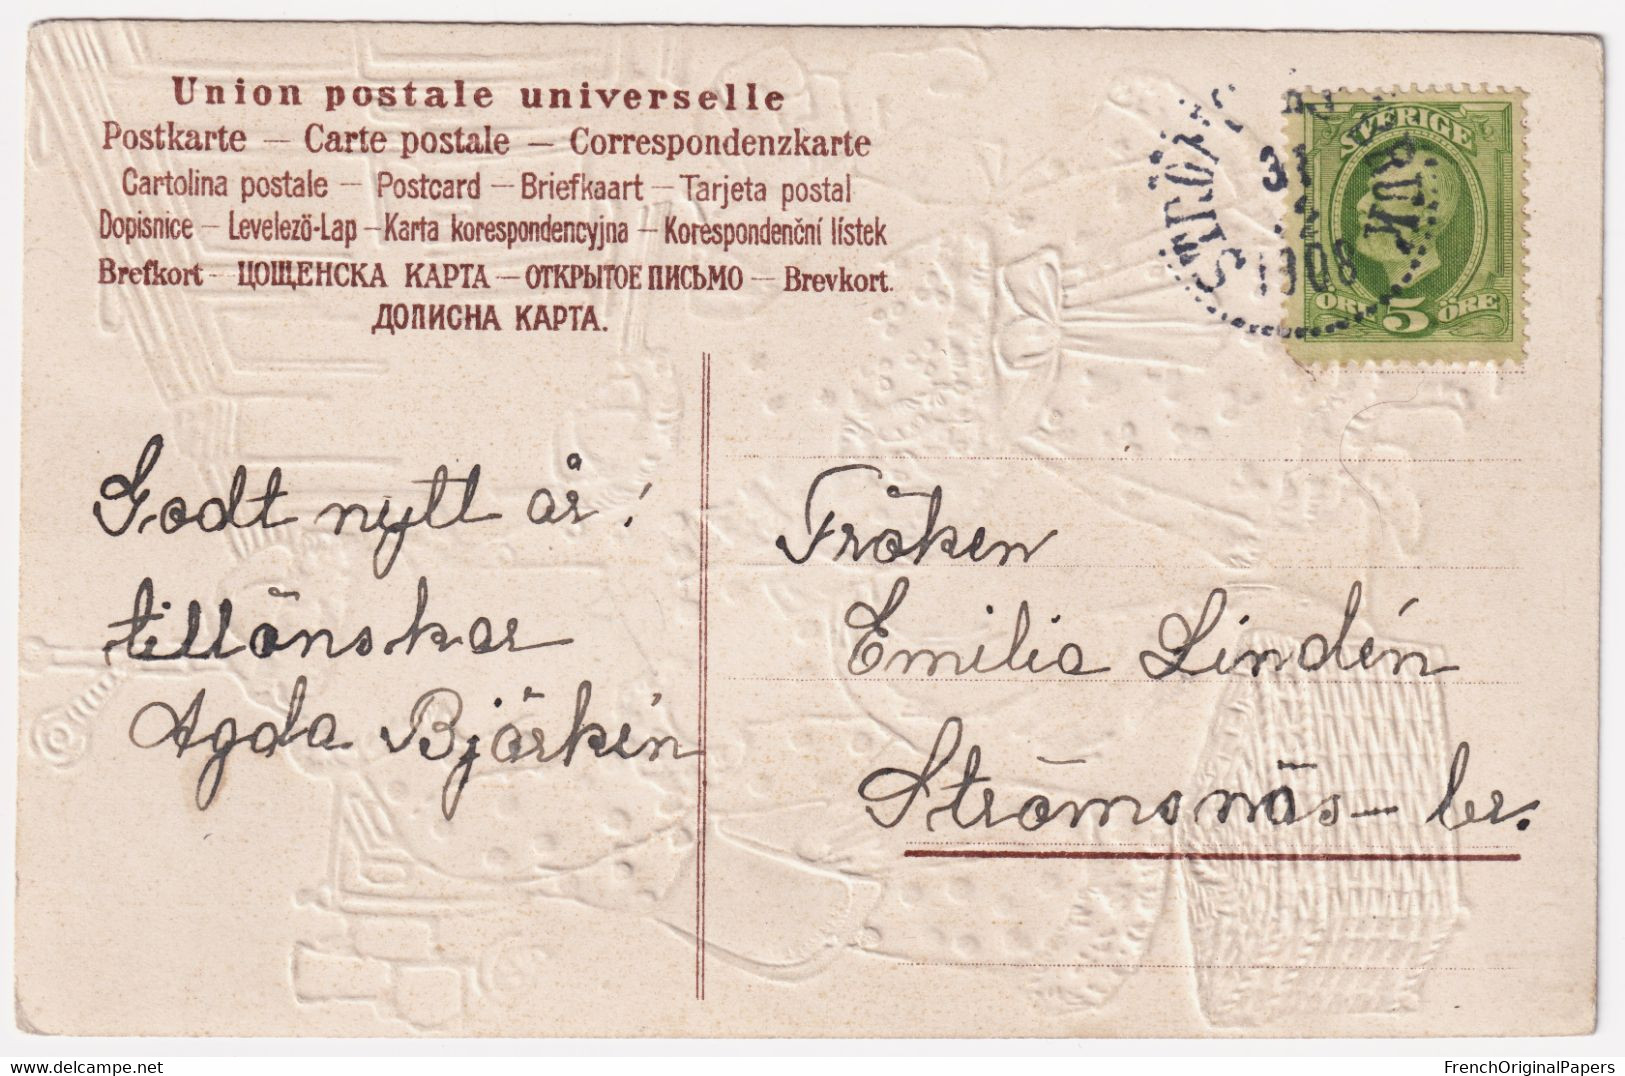 Union postale universelle
Postkarte — Carte postale — Correspondenzkarte
Cartolina postale — Postcard — Briefkaart — Tarjeta postal
Dopisnice — Levelezö-Lap — Karta korespondencyjna — Korespondenční lístek
Brefkort — ЦОЩЕНСКА КАРТА — ОТКРЫТОЕ ПИСЬМО — Brevkort.
ДОПИСНА КАРТА.
SVERIGE
31
12
1908
ÖRE 5 ÖRE
Godt nytt år!
tillönskar
Agda Björkén
Fröken
Emilia Lindén
Strömsnäs-br.
FrenchOriginalPapers
www.delcampe.net